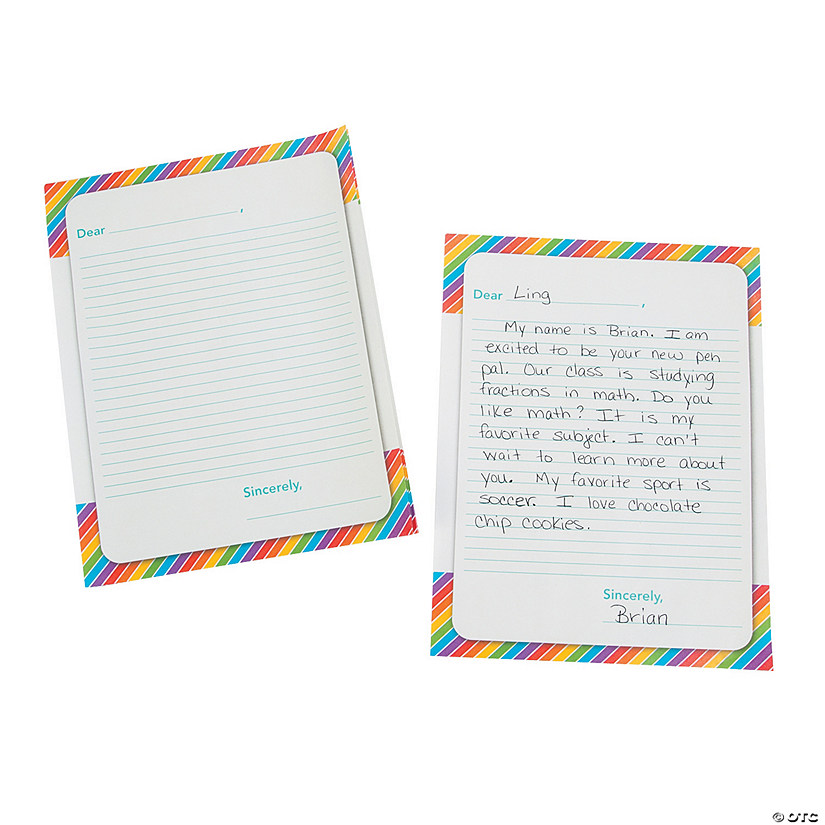 Dear ,
Sincerely,
Dear Ling ,
My name is Brian. I am
excited to be your new pen
pal. Our class is studying
fractions in math. Do you
like math? It is my
favorite subject. I can't
wait to learn more about
you. My favorite sport is
soccer. I love chocolate
chip cookies.
Sincerely,
Brian
© OTC